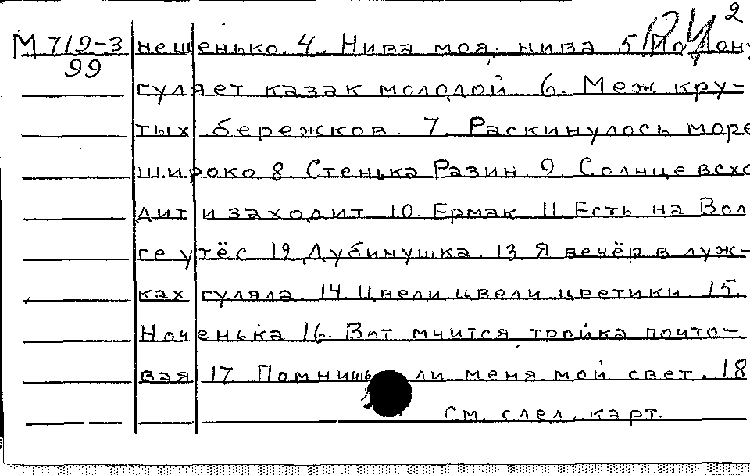 2
М 719-3 нешенько. 4. Нива моя, нива 5. По Дону
99 гуляет казак молодой 6. Меж кру-
тых бережков. 7. Раскинулось море
широко 8. Стенька Разин 9. Солнце всхо
дит и заходит 10. Ермак 11 Есть на Вол
ге утёс 12 Дубинушка. 13 Я вечёр в луж-
ках гуляла 14. Цвели цвели цветики 15.
Ноченька 16. Вот мчится тройка почто-
вая 17 Помнишь ли меня мой свет. 18
См. след. карт.